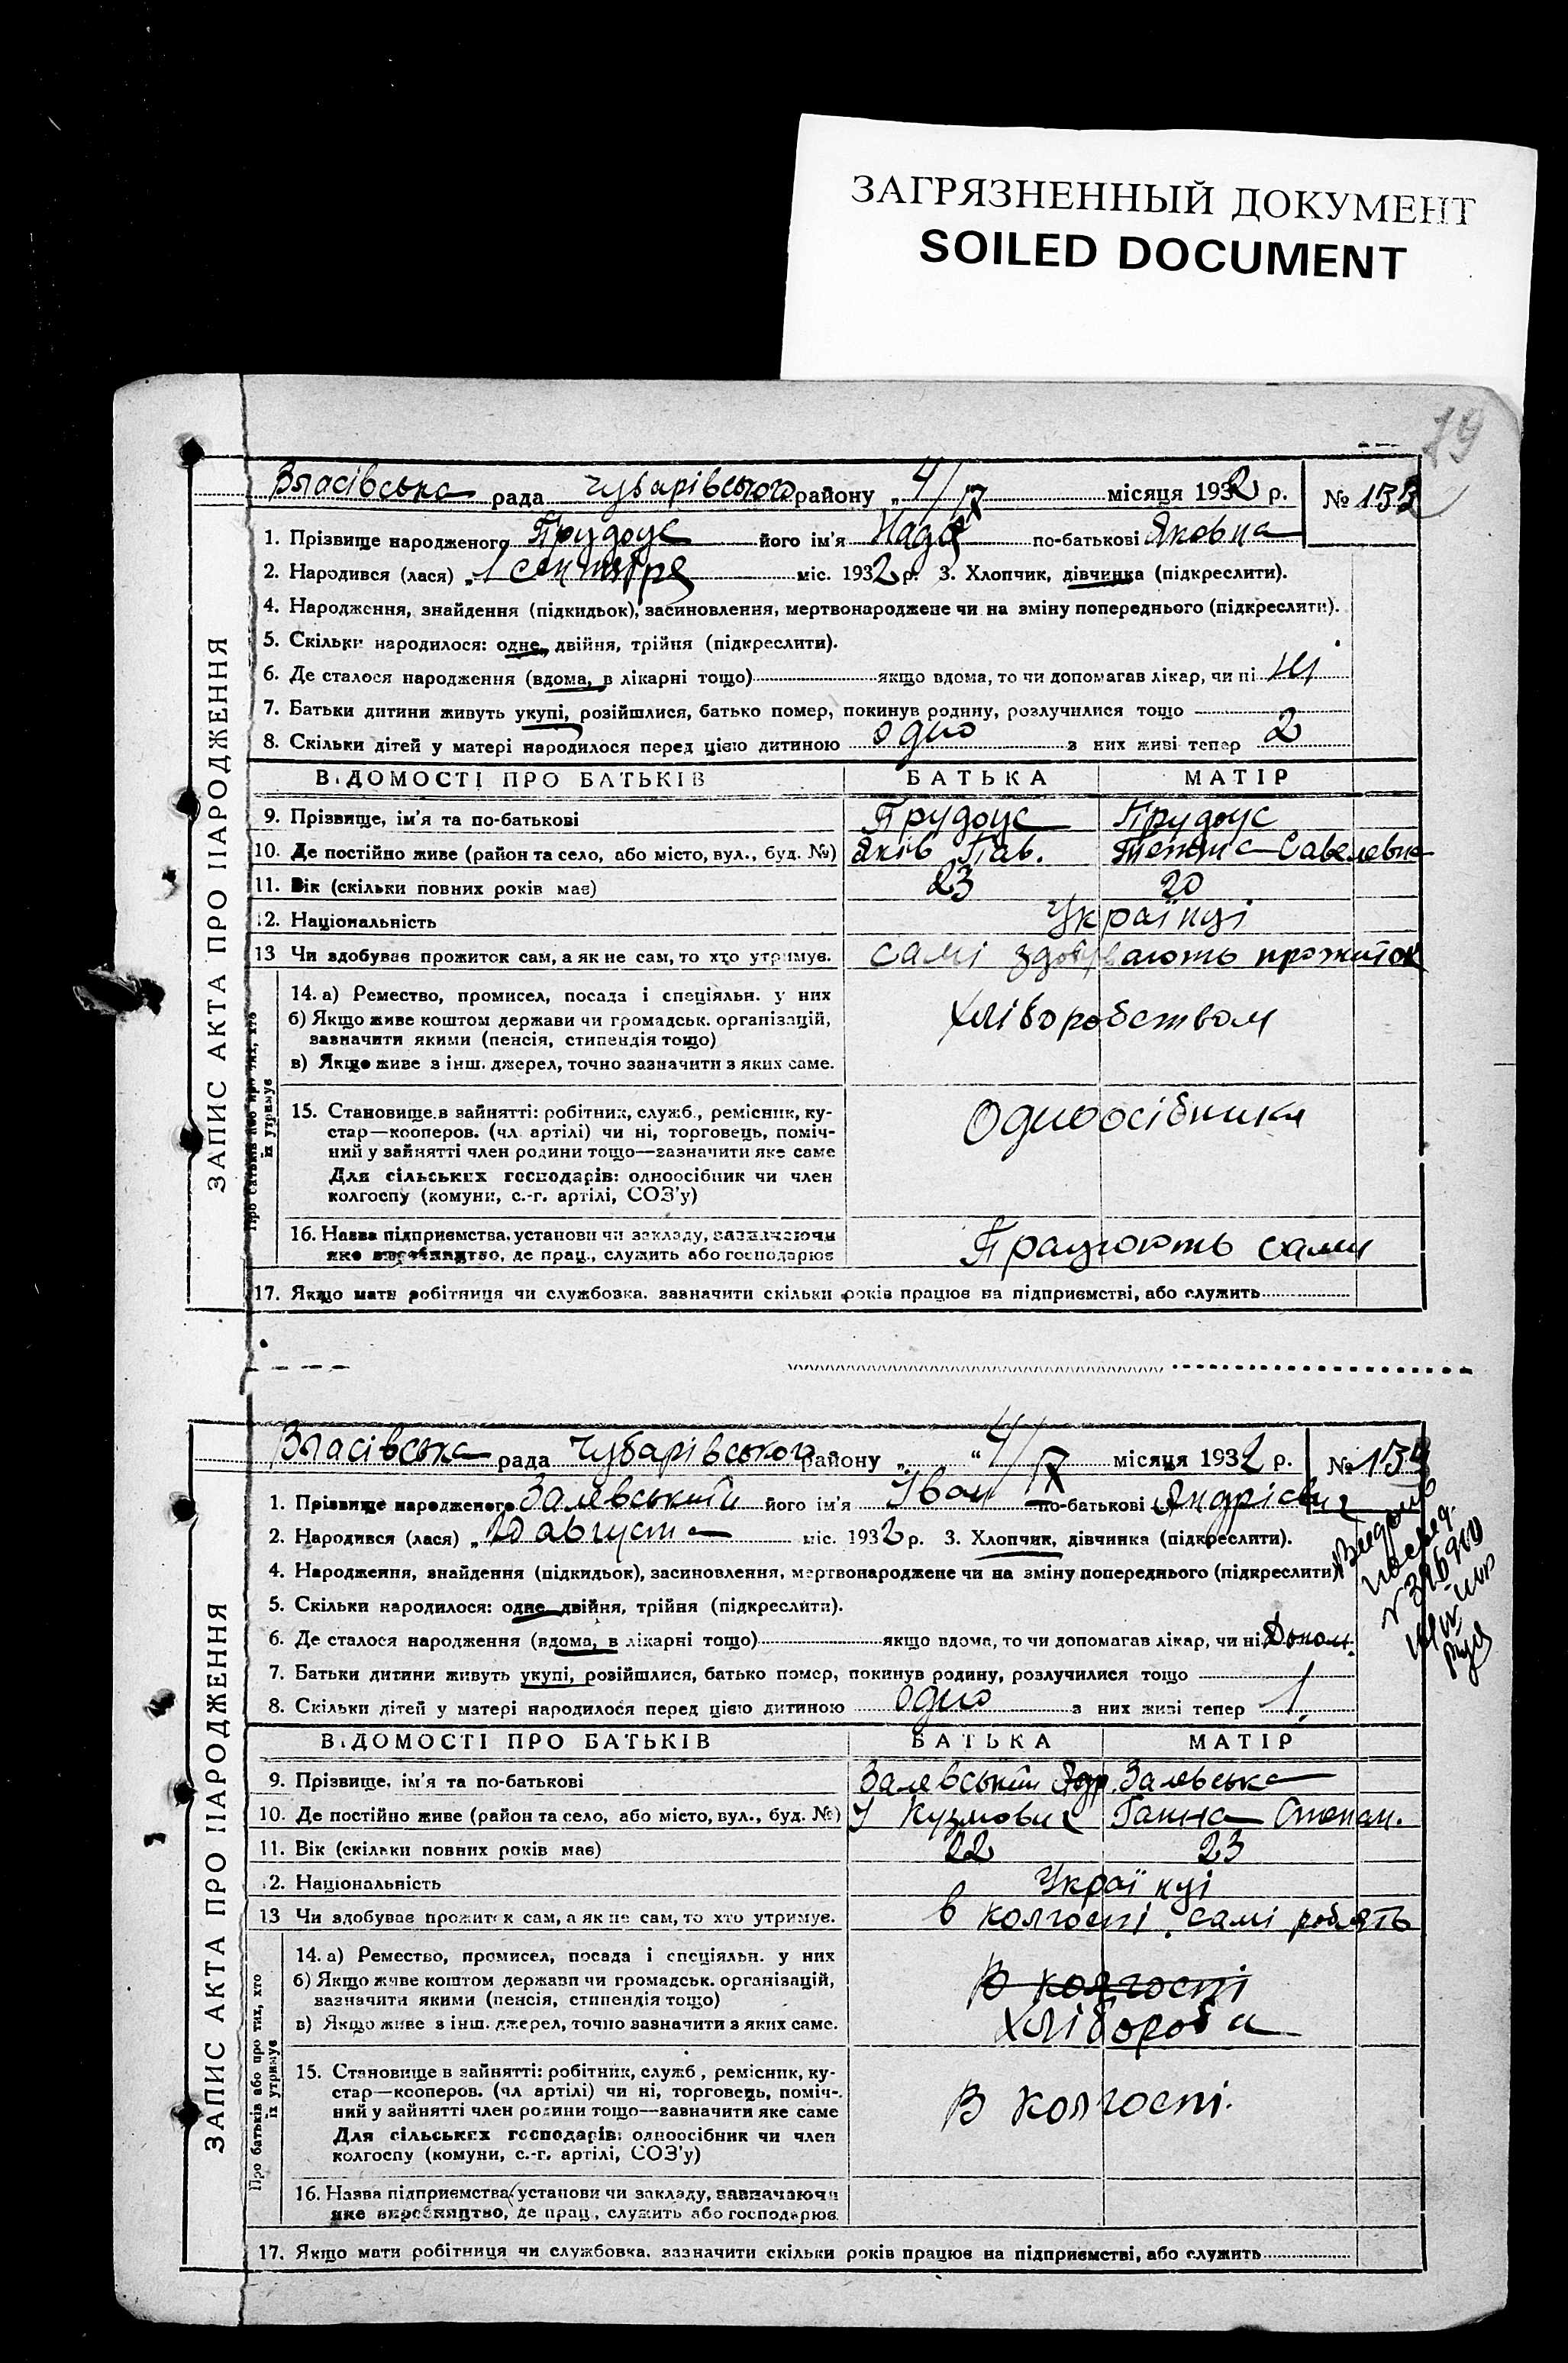 ЗАГРЯЗНЕННЫЙ ДОКУМЕНТ
SOILED DOCUMENT
79
ЗАПИС АКТА ПРО НАРОДЖЕННЯ
Власівська рада Чубарівського району „ 4/IX місяця 1932 р. № 133
1. Прізвище народженого Прудоус його ім'я Надя по-батькові Яковна
2. Народився (лася) „ 1 сентября міс. 1932 р. 3. Хлопчик, дівчинка (підкреслити).
4. Народження, знайдення (підкидьок), засиновлення, мертвонароджене чи на зміну попереднього (підкреслити).
5. Скільки народилося: одне, двійня, трійня (підкреслити).
6. Де сталося народження (вдома, в лікарні тощо) якщо вдома, то чи допомагав лікар, чи ні ні
7. Батьки дитини живуть укупі, розійшлися, батько помер, покинув родину, розлучилися тощо
8. Скільки дітей у матері народилося перед цією дитиною одно з них живі тепер 2
ВІДОМОСТІ ПРО БАТЬКІВ БАТЬКА МАТІР
9. Прізвище, ім'я та по-батькові Прудоус Прудоус
10. Де постійно живе (район та село, або місто, вул., буд. №) Яків Пав. Савелевна
11. Вік (скільки повних років має) 23 20
12. Національність Українці
13 Чи здобуває прожиток сам, а як не сам, то хто утримує. самі здобувають прожиток
Про батьків або про тих, хто їх утримує
14. а) Ремество, промисел, посада і спеціяльн. у них Хліборобством
б) Якщо живе коштом держави чи громадськ. організацій,
зазначити якими (пенсія, стипендія тощо)
в) Якщо живе з інш. джерел, точно зазначити з яких саме.
15. Становище в зайнятті: робітник, служб., ремісник, ку- Одноосібники
стар—кооперов. (чл. артілі) чи ні, торговець, поміч-
ний у зайнятті член родини тощо—зазначити яке саме
Для сільських господарів: одноосібник чи член
колгоспу (комуни, с.-г. артілі, СОЗ'у)
16. Назва підприємства, установи чи закладу, зазначаючи Працюють сами
яке виробництво, де прац., служить або господарює
17. Якщо мати робітниця чи службовка, зазначити скільки років працює на підприємстві, або служить
ЗАПИС АКТА ПРО НАРОДЖЕННЯ
Власівська рада Чубарівського району „ “ 4/IX місяця 1932 р. № 134
1. Прізвище народженого Залевський його ім'я Іван по-батькові Андрієвич
2. Народився (лася) „ 20 августа міс. 1932 р. 3. Хлопчик, дівчинка (підкреслити).
4. Народження, знайдення (підкидьок), засиновлення, мертвонароджене чи на зміну попереднього (підкреслити).
5. Скільки народилося: одне двійня, трійня (підкреслити).
6. Де сталося народження (вдома, в лікарні тощо) якщо вдома, то чи допомагав лікар, чи ні Допом.
7. Батьки дитини живуть укупі, розійшлися, батько помер, покинув родину, розлучилися тощо
8. Скільки дітей у матері народилося перед цією дитиною одно з них живі тепер 1.
ВІДОМОСТІ ПРО БАТЬКІВ БАТЬКА МАТІР
9. Прізвище, ім'я та по-батькові Залевський Залевська
10. Де постійно живе (район та село, або місто, вул., буд. №) Кузмович Ганна Степан.
11. Вік (скільки повних років має) 22 23
12. Національність Українці
13 Чи здобуває прожиток сам, а як не сам, то хто утримує. в колгоспі, самі роблять
Про батьків або про тих, хто їх утримує
14. а) Ремество, промисел, посада і спеціяльн. у них
б) Якщо живе коштом держави чи громадськ. організацій, В колгоспі
зазначити якими (пенсія, стипендія тощо)
в) Якщо живе з інш. джерел, точно зазначити з яких саме. Хлібороба
15. Становище в зайнятті: робітник, служб., ремісник, ку-
стар—кооперов. (чл артілі) чи ні, торговець, поміч- В колгоспі.
ний у зайнятті член родини тощо—зазначити яке саме
Для сільських господарів: одноосібник чи член
колгоспу (комуни, с.-г. артілі, СОЗ'у)
16. Назва підприємства, установи чи закладу, зазначаючи
яке виробництво, де прац., служить або господарює.
17. Якщо мати робітниця чи службовка, зазначити скільки років працює на підприємстві, або служить